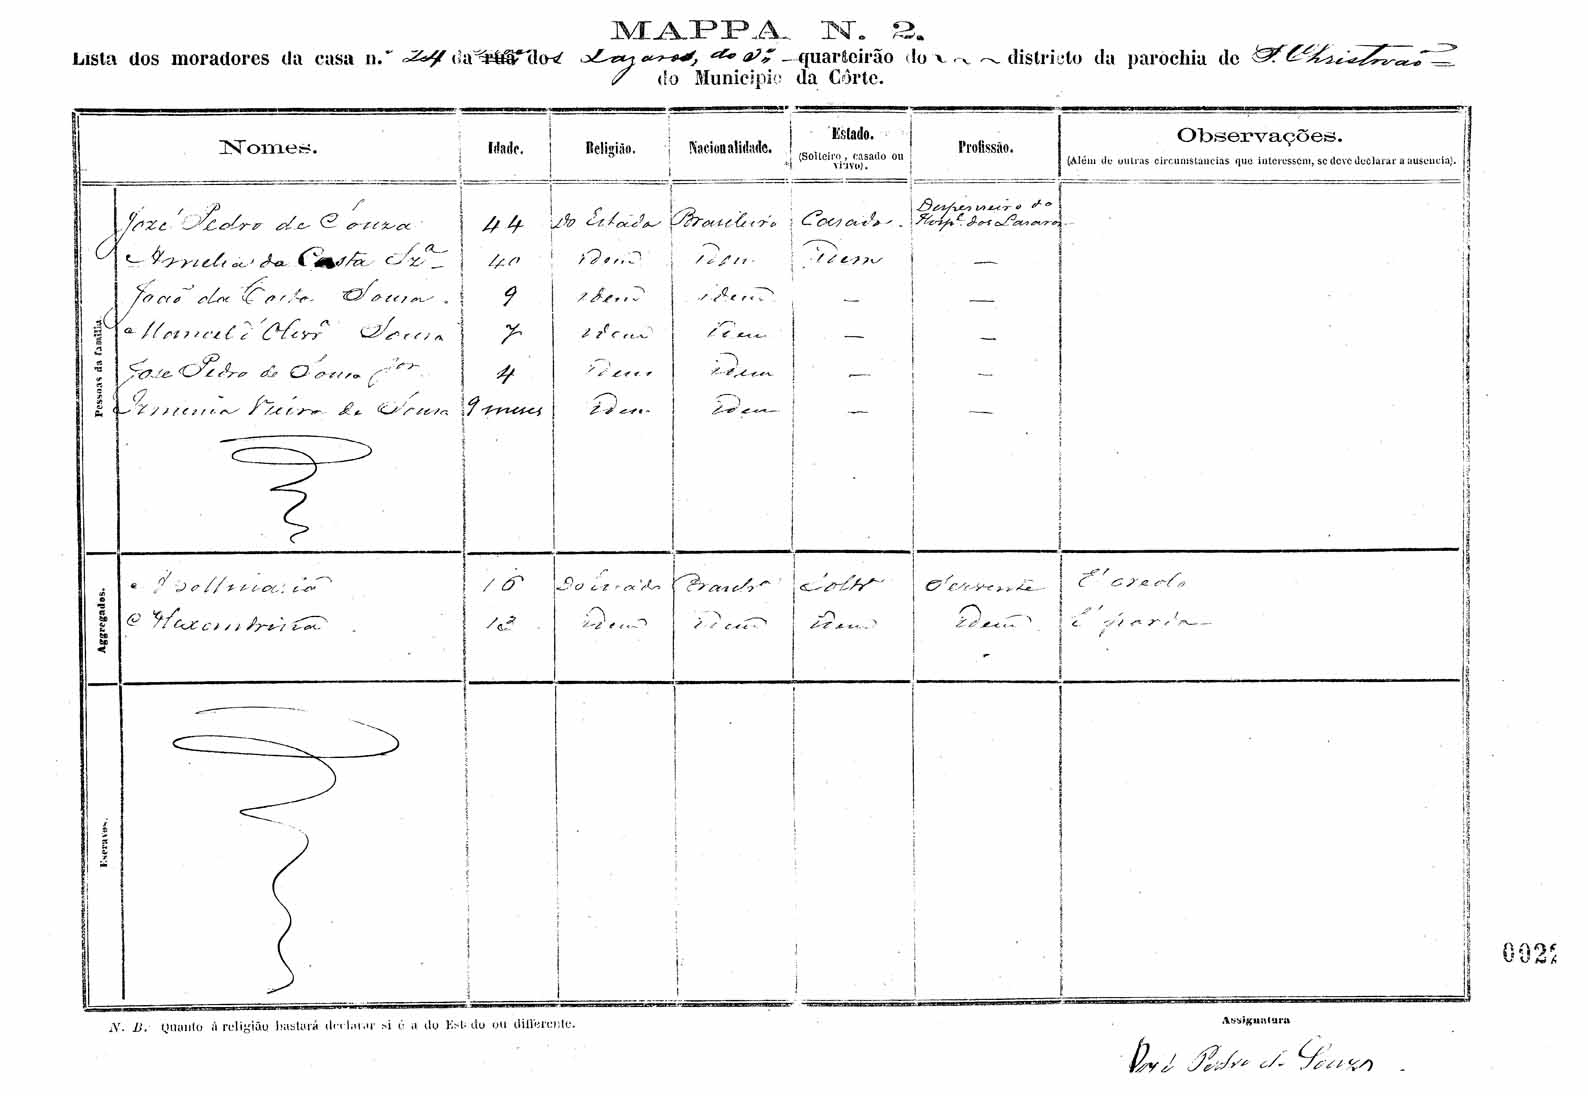 MAPPA N. 2.
Lista dos moradores da casa n.º 24 da rua dos Lazaros, do 3º quarteirão do districto da parochia de S. Christovão
do Municipio da Côrte.
Nomes. Idade. Religião. Nacionalidade. Estado. (Solteiro, casado ou viuvo). Profissão. Observações. (Além de outras circumstancias que interessem, se deve declarar a ausencia).
Pessoas da familia
José Pedro de Souza 44 Do Estado Brasileiro Casado. Despenseiro do Hospl. dos Lasaros
Amelia da Costa Sza 40 idem idem Idem —
João da Costa Sousa. 9 idem idem — —
Manoel Olivra Sousa 7 idem idem — —
Jose Pedro de Sousa jor 4 idem idem — —
Vieira de Sousa 9 meses idem idem — —
Aggregados.
16 Do Estado Brasilro Soltro Servente É creolo
Alexandrina 13 idem idem idem idem É parda
Escravos.
0022
N. B. Quanto á religião bastará declarar si é a do Estado ou differente.
Assignatura
José Pedro de Souza